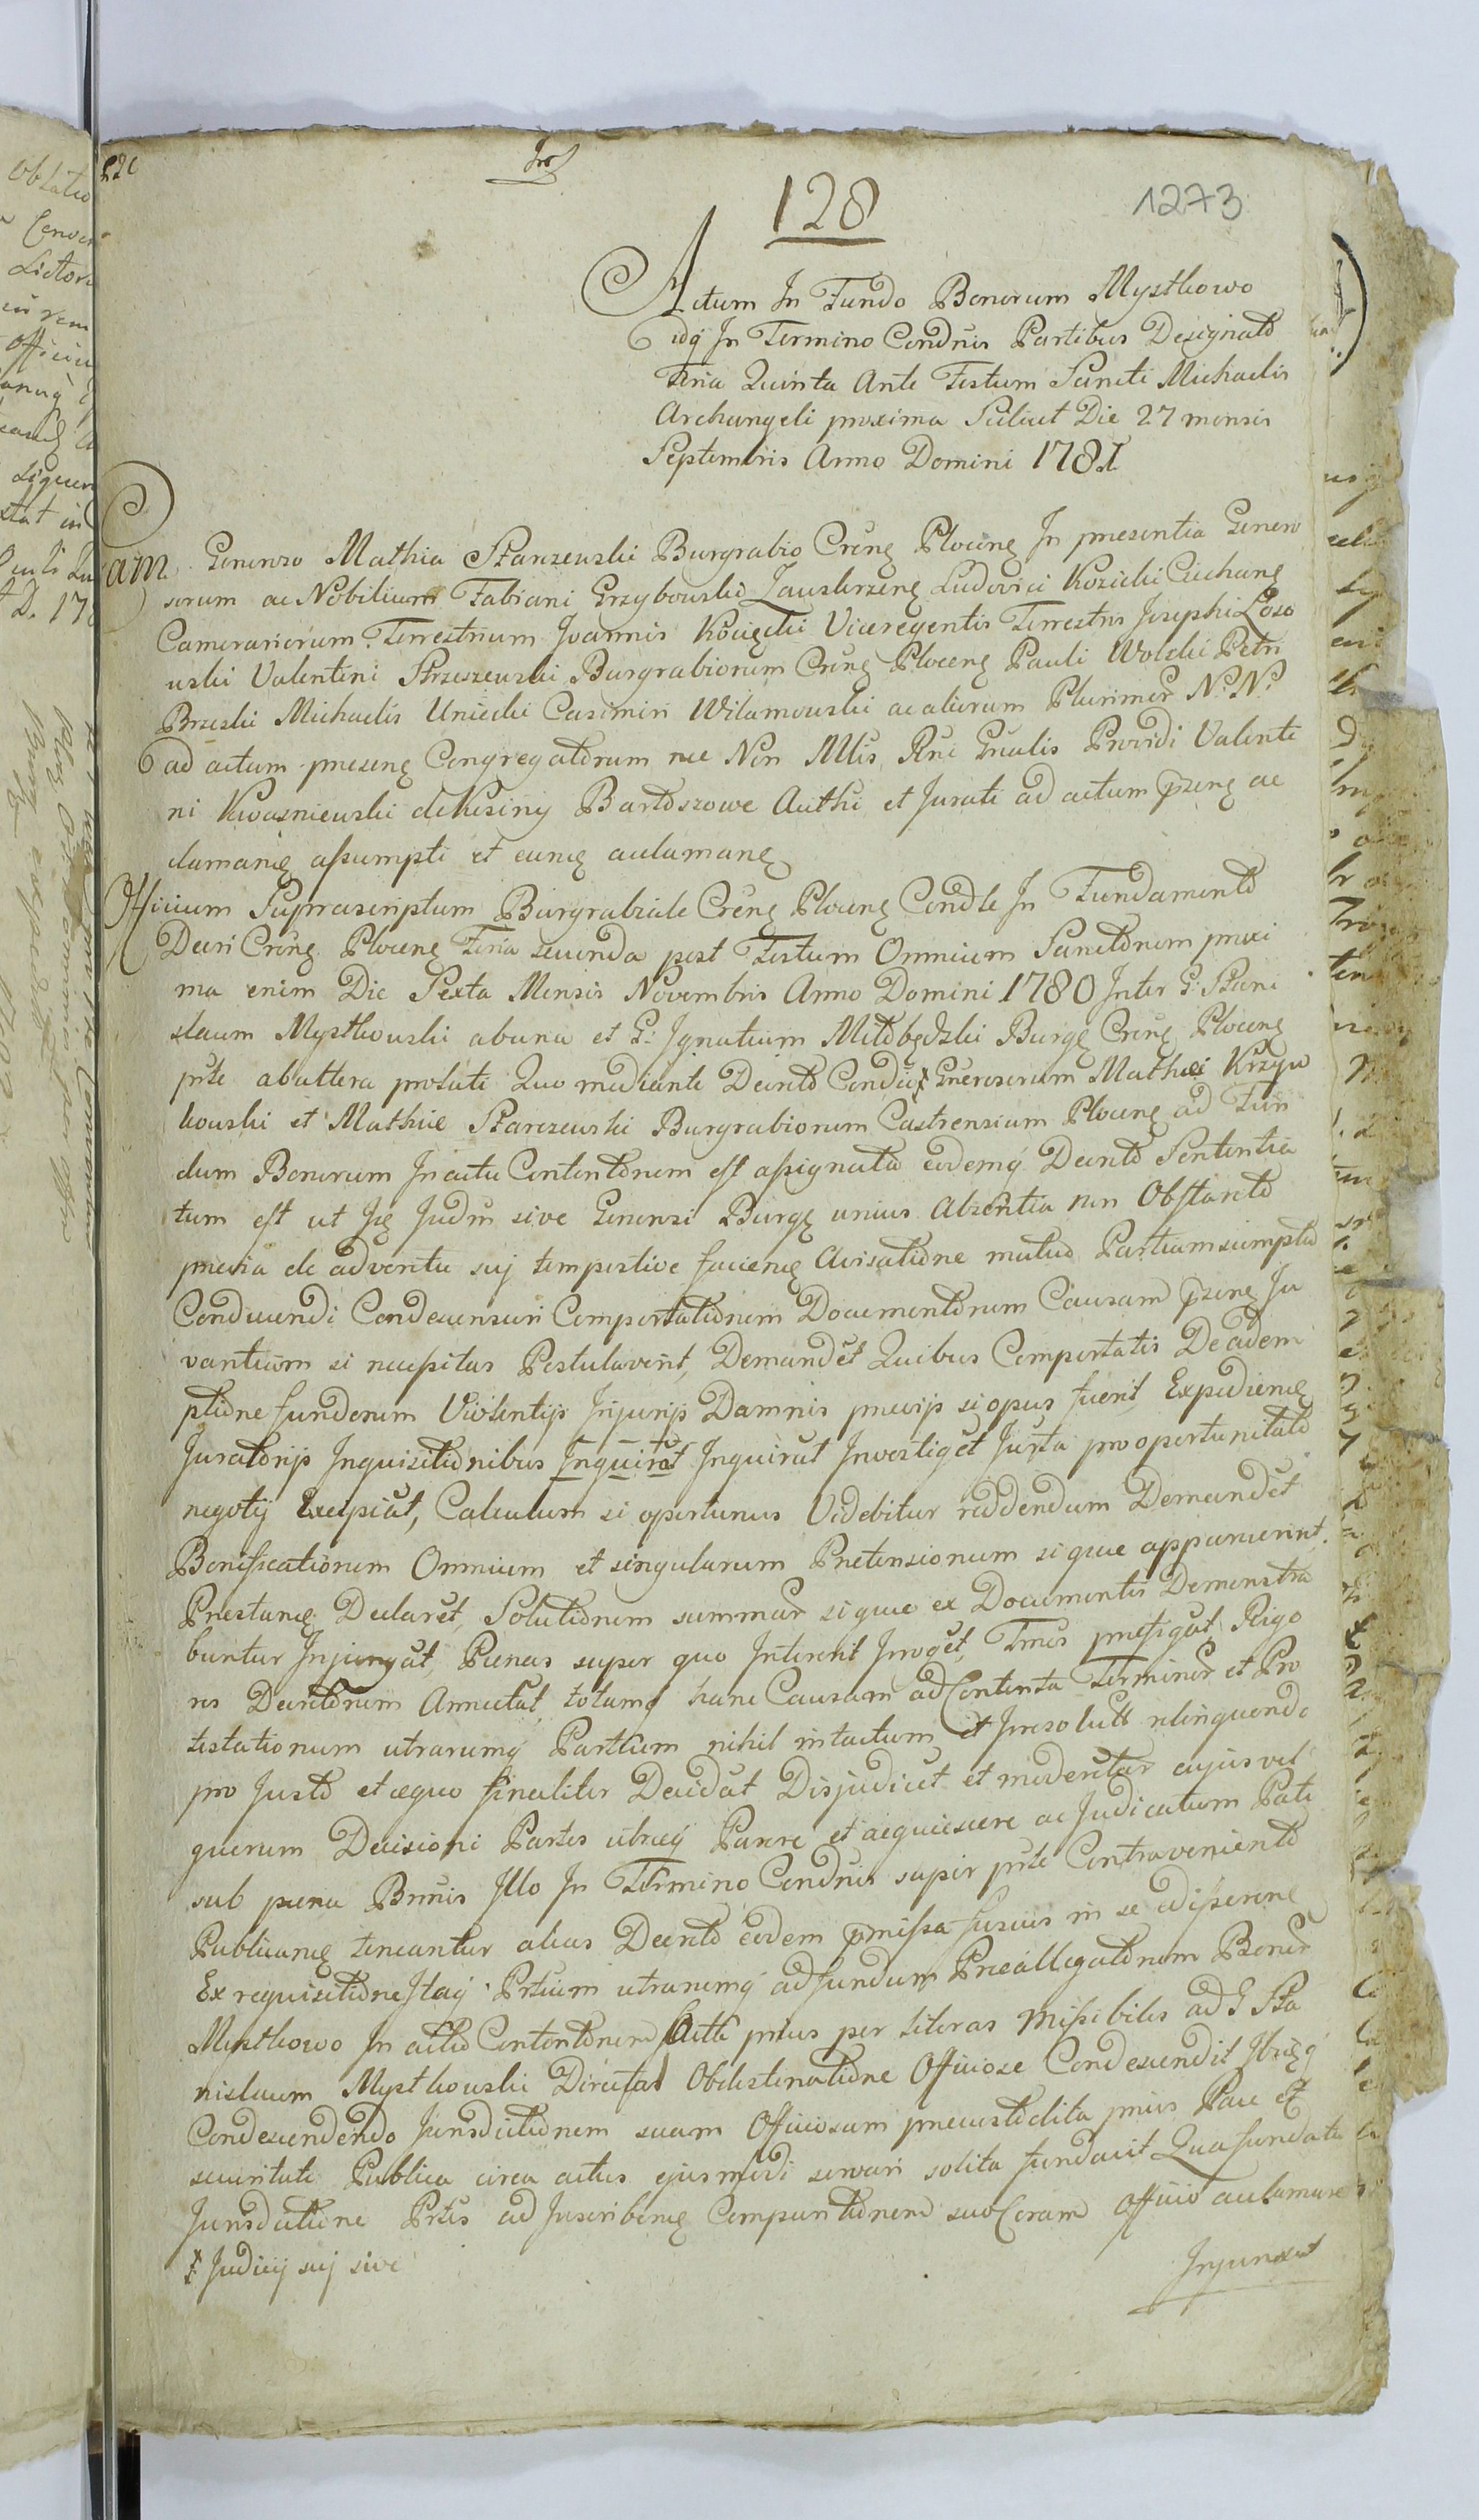 128
1273
Actum In Fundo Bonorum Mystkowo
idq In Termino Condnis Partibus Designato
Feria Quinta Ante Festum Sancti Michaelis
Archangeli proxima Scilicet Die 27 mensis
Septembris Anno Domini 1781
Cam Generoso Mathia Starzewski Burgrabio Creng Ploceng In presentia Genero
sorum ac Nobilium Fabiani Grzybowski Zauskrzeng Ludovici Kozicki Ciechang
Camerariorum Terrestrium Joannis Kocięcki Viceregentis Terrestris Josephi Łoso
wski Valentini Strzeszewski Burgrabiorum Creng Ploceng Pauli Wolski Petri
Brzeski Michaelis Uniecki Casimiri Wilamowski ac aliorum Plurimor N. N.
ad actum preseng Congregatorum nec Non Mlis Rni Gnalis Providi Valenti
ni Kwasniewski de Kisiny Bartoszowe Authi et Jurati ad actum przeng ac
clamanię assumpti et eunię aclamanę
Officium Suprascriptum Burgrabiale Creng Ploceng Condle In Fundamento
Decri Creng Ploceng Feria secunda post Festum Omnium Sanctorum proxi
ma enim Die Sexta Mensis Novembris Anno Domini 1780 Inter G: Stani
slaum Mystkowski abuna et G: Ignatium Miłobędzki Burgę Creng Ploceng
prte abaltera prolati Quo mediante Decreto Condi ⁑ Generosorum Mathiæ Krzyw
kowski et Mathiæ Starzewski Burgrabiorum Castrensium Ploceng ad Fun
dum Bonorum In actu Contentorum est assignata eodemq Decreto Sententia
tum est ut Ję Judm sive Generosi Burgę unius Absentia non Obstante
previa de adventu suj tempestive facienę Avisatione mutuo Partium sumptu
Conducendi Condescensuri Comportationem Documentorum Causam przeng Ju
vantium si necessitas Postulaverit, Demandet Quibus Comportatis De adem
ptione fundorum Violentijs Injurijs Damnis previjs si opus fuerit Expedienę
Juratorijs Inquisitionibus Inquirat Inquirat Investiget Justa pro oportunitate
negotij Excipiat, Calculum si oportunus Videbitur reddendum Demandet
Bonificationem Omnium et singularum Pretensionum si que apparuerint
Prestanę Declaret, Solutionem summar si que ex Documentis Demonstra
buntur Injungat, Pœnas super quo Intererit Iroget, Tmis prefigat Rigo
res Decretorum Annectat, totamq hanc Causam ad Contenta Terminor et Pro
testationum utrarumq Partium nihil intactum et Iresolutt relinquendo
pro Justo et æquo finaliter Decidat Disjudicet et moderetur cujus vel
quorum Decisioni Partes utræq Parere et acquiescere ac Judicatum Pati
sub pœna Bnnis Illo In Termino Condnis super prte Contraveniente
Publicanę teneantur alias Decreto eodem pmissa fusius in se adisserenę
Ex requisitione Itaq Prtium utrarumq ad fundum Preallegatorum Bonor
Mystkowo In actu Contentorum facta prius per literas Missibiles ad G Sta
nislaum Mystkowski Directas Obdestinatione Officiose Condescendit Ibiq
Condescendendo Jurisdictionem suam Officiosam precustodita prius Pace et
securitate Publica circa actus ejusmodi servari solita fundavit Qua fundata
Jurisdictione Prtes ad Inscribenę Comparitionem suo Coram Officio aclamare
Injunxit
⁑ Judicij suj sive